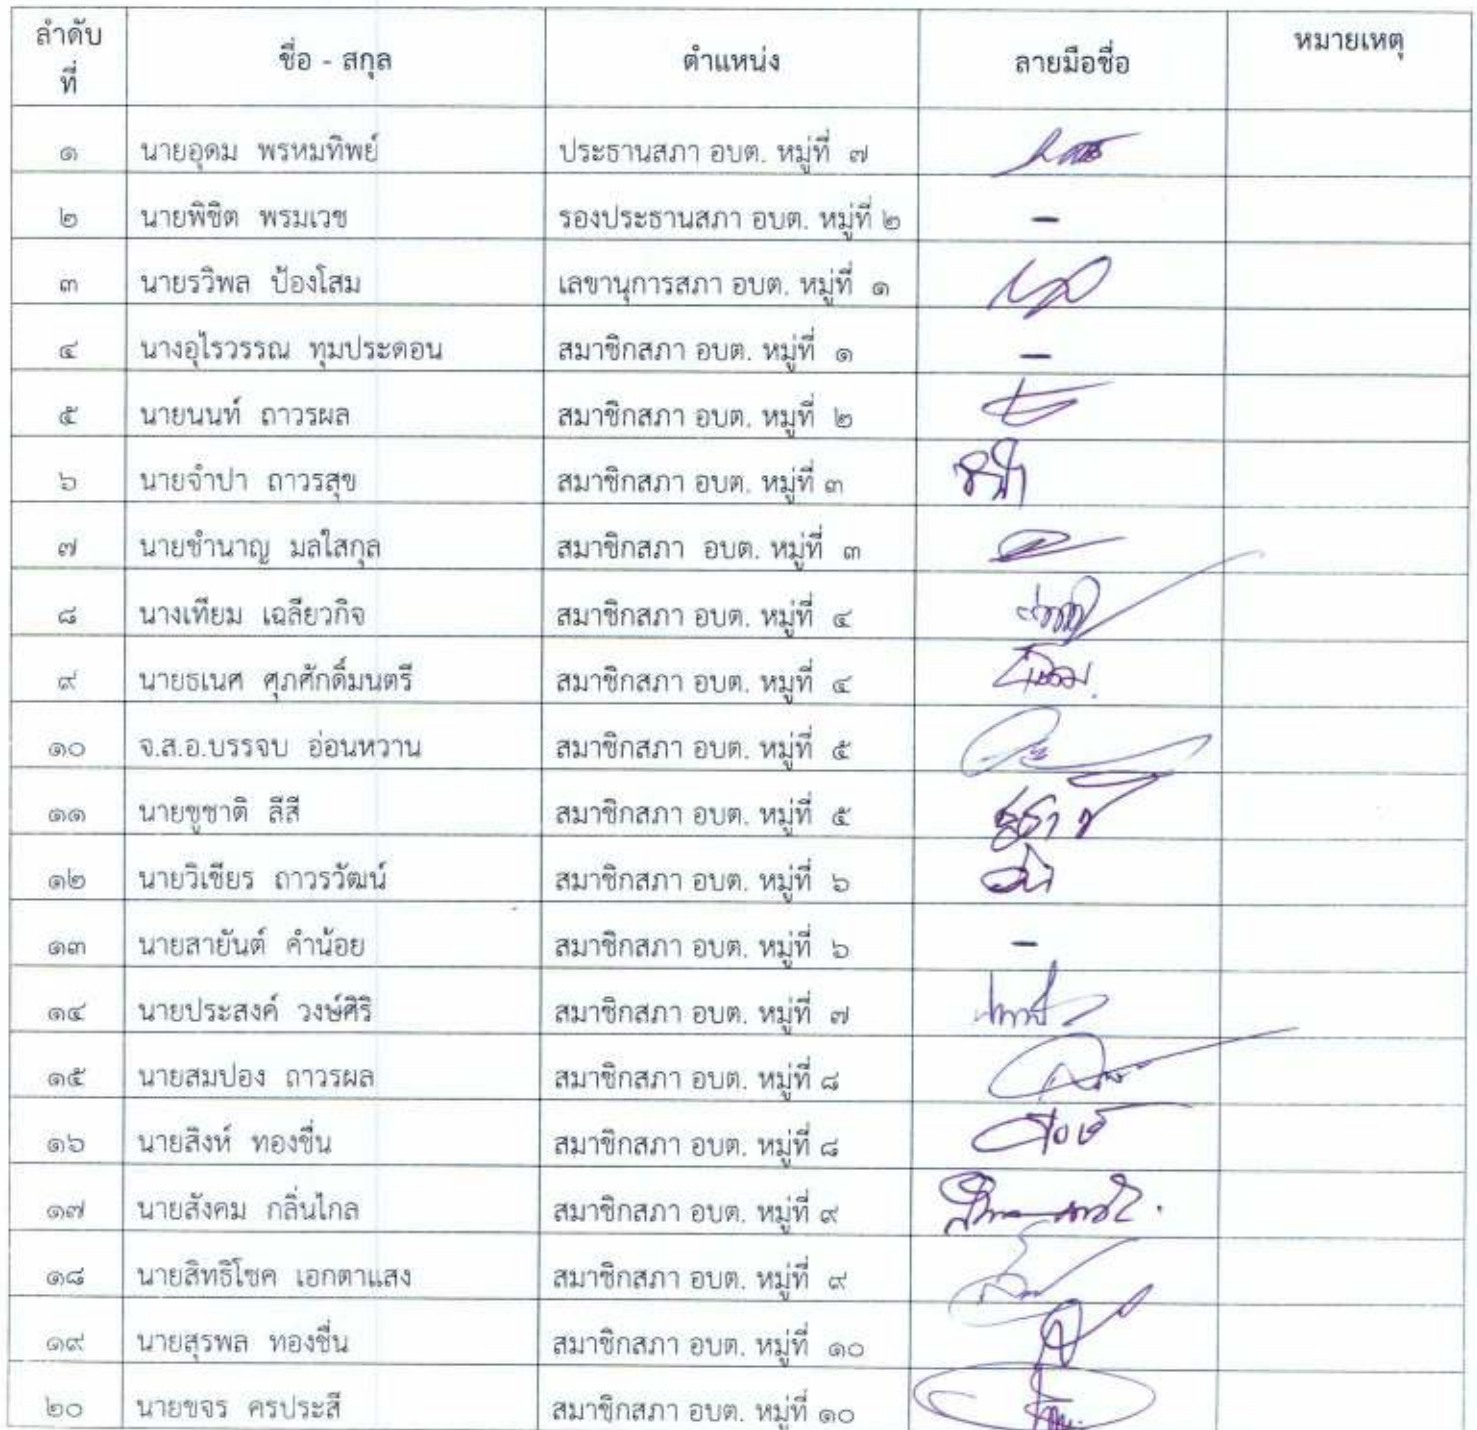 ลำดับ
ที่
ชื่อ - สกุล
ตำแหน่ง
ลายมือชื่อ
หมายเหตุ
๑ นายอุดม พรหมทิพย์ ประธานสภา อบต. หมู่ที่ ๗
๒ นายพิชิต พรมเวช รองประธานสภา อบต. หมู่ที่ ๒ -
๓ นายรวิพล ป้องโสม เลขานุการสภา อบต. หมู่ที่ ๑
๔ นางอุไรวรรณ ทุมประดอน สมาชิกสภา อบต. หมู่ที่ ๑ -
๕ นายนนท์ ถาวรผล สมาชิกสภา อบต. หมู่ที่ ๒
๖ นายจำปา ถาวรสุข สมาชิกสภา อบต. หมู่ที่ ๓
๗ นายชำนาญ มลใสกุล สมาชิกสภา อบต. หมู่ที่ ๓
๘ นางเทียม เฉลียวกิจ สมาชิกสภา อบต. หมู่ที่ ๔
๙ นายธเนศ ศุภศักดิ์มนตรี สมาชิกสภา อบต. หมู่ที่ ๔
๑๐ จ.ส.อ.บรรจบ อ่อนหวาน สมาชิกสภา อบต. หมู่ที่ ๕
๑๑ นายชูชาติ ลีสี สมาชิกสภา อบต. หมู่ที่ ๕
๑๒ นายวิเชียร ถาวรวัฒน์ สมาชิกสภา อบต. หมู่ที่ ๖
๑๓ นายสายันต์ คำน้อย สมาชิกสภา อบต. หมู่ที่ ๖ -
๑๔ นายประสงค์ วงษ์ศิริ สมาชิกสภา อบต. หมู่ที่ ๗
๑๕ นายสมปอง ถาวรผล สมาชิกสภา อบต. หมู่ที่ ๘
๑๖ นายสิงห์ ทองชื่น สมาชิกสภา อบต. หมู่ที่ ๘
๑๗ นายสังคม กลิ่นไกล สมาชิกสภา อบต. หมู่ที่ ๙
๑๘ นายสิทธิโชค เอกตาแสง สมาชิกสภา อบต. หมู่ที่ ๙
๑๙ นายสุรพล ทองชื่น สมาชิกสภา อบต. หมู่ที่ ๑๐
๒๐ นายขจร ครประสี สมาชิกสภา อบต. หมู่ที่ ๑๐